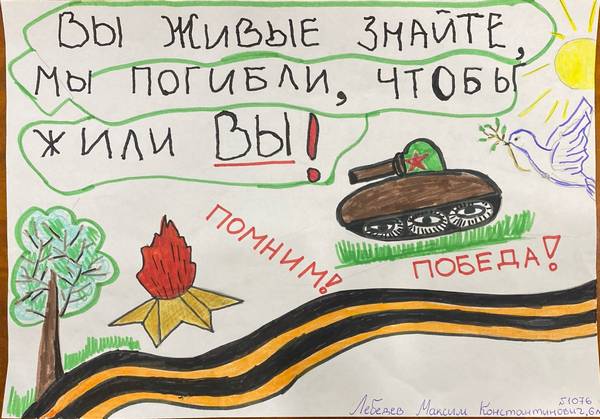 ВЫ ЖИВЫЕ ЗНАЙТЕ,
МЫ ПОГИБЛИ, ЧТОБЫ
ЖИЛИ ВЫ!
ПОМНИМ!
ПОБЕДА!
51076
Лебедев Максим Константинович, 6л